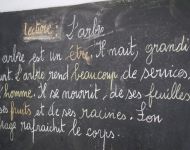 lecture : L'arbre
arbre est un être. Il naît, grandi
nt. L'arbre rend beaucoup de services
l'homme. Il se nourrit, de ses feuilles
ses fruits et de ses racines. Son
rafraichit le corps.